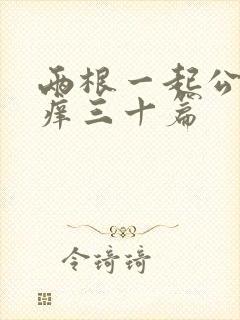 两根一起公
痒三十篇
令琦琦